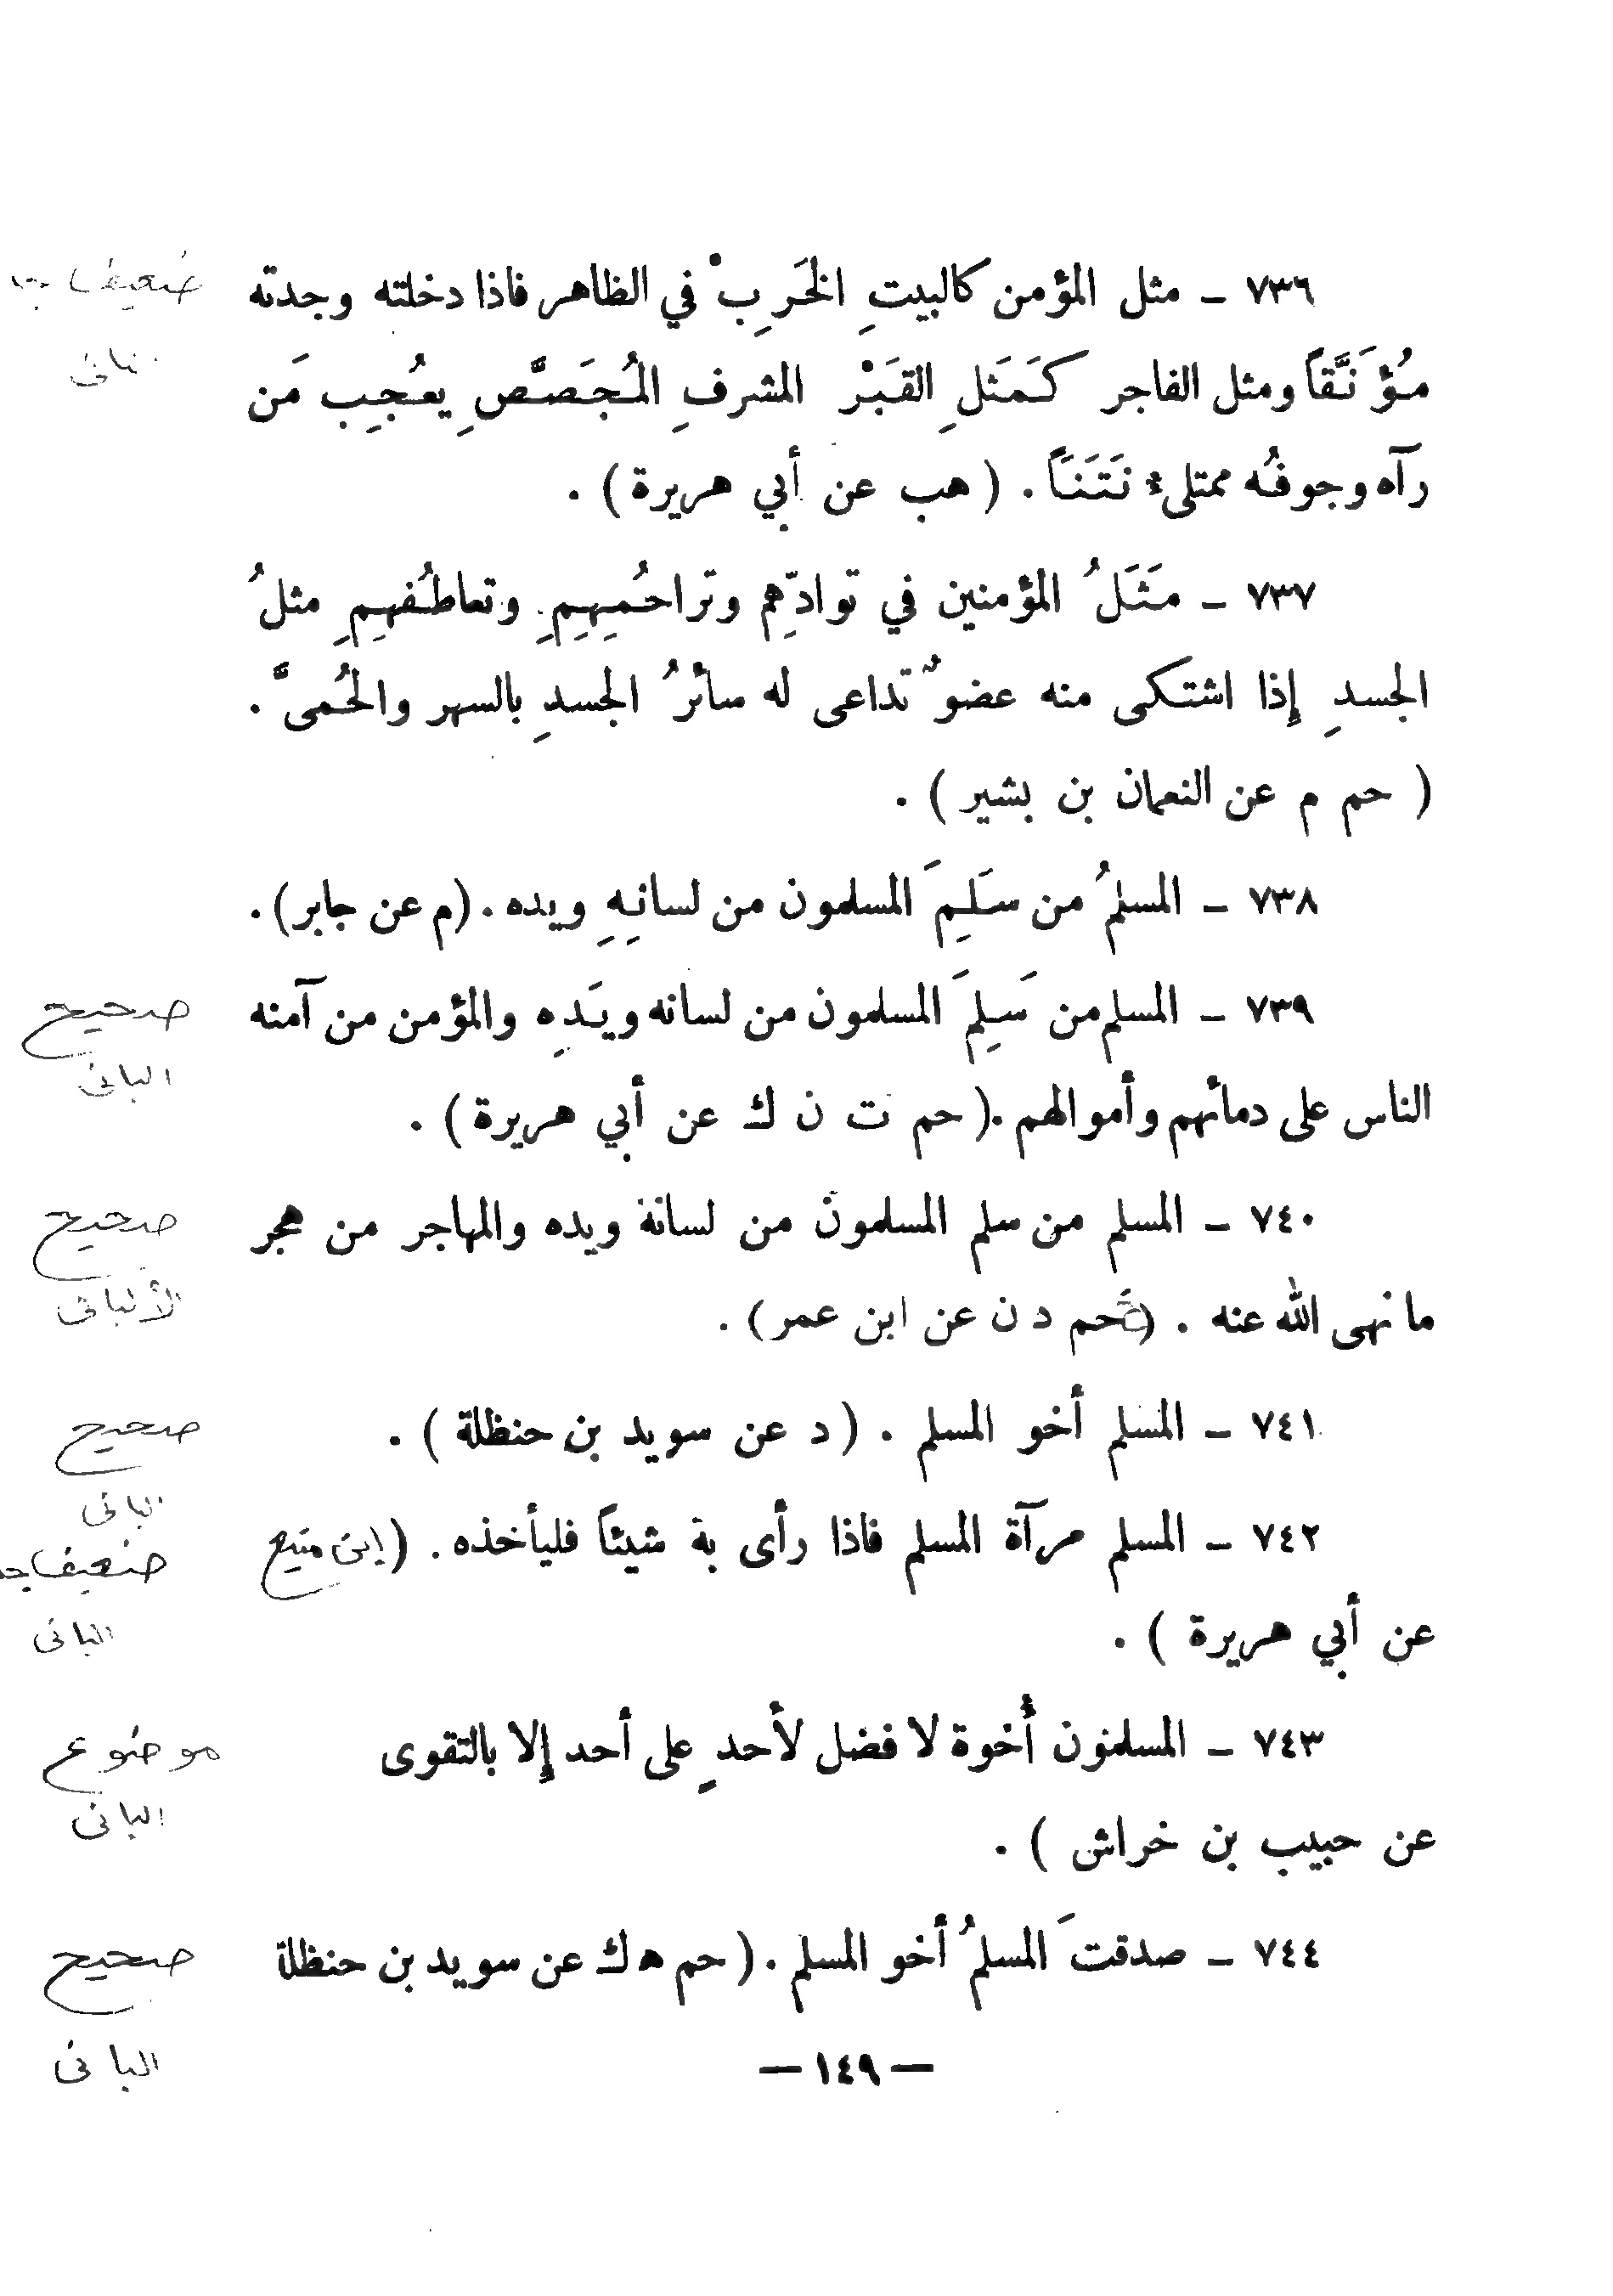 ٧٣٦ ـ مثل المؤمن كالبيتِ الخَرِبْ في الظاهر فاذا دخلته وجدته
ضعيف جدا
مُؤَنَّقاً ومثل الفاجر كَمَثلِ القَبْر المشرفِ المُجَصَّصِ يعُجِب مَن
رآه وجوفُه ممتلىء نَتَنَاً . ( هب عن أبي هريرة ) .
٧٣٧ ـ مَثَلُ المؤمنين في توادِّهم وتراحُمِهِمِ وتعاطُفهِمِ مثلُ
الجسدِ إِذا اشتكى منه عضوٌ تداعى له سائرُ الجسدِ بالسهر والحُمىَّ .
( حم م عن النعمان بن بشير ) .
٧٣٨ ـ المسلمُ من سَلِمَ المسلمون من لسانِهِ ويده . (م عن جابر) .
٧٣٩ ـ المسلم من سَلِمَ المسلمون من لسانه ويَدِه والمؤمن من آمنه
صحيح
البانى
الناس على دمائهم وأموالهم . ( حم ت ن ك عن أبي هريرة ) .
٧٤٠ ـ المسلم من سلم المسلمون من لسانة ويده والمهاجر من هجر
صحيح
الألبانى
ما نهى الله عنه . ( حم د ن عن ابن عمر ) .
٧٤١ ـ المسلم أخو المسلم . ( د عن سويد بن حنظلة ) .
صحيح
البانى
٧٤٢ ـ المسلم مرآة المسلم فاذا رأى بة شيئاً فليأخذه . ( ابن منيع
ضعيف جد
البانى
عن أبي هريرة ) .
٧٤٣ ـ المسلمون أُخوة لا فضل لأحدٍ على أحد إِلا بالتقوى
موضوع
البانى
عن حبيب بن خراش ) .
٧٤٤ ـ صدقتَ المسلمُ أخو المسلم . ( حم ه ك عن سويد بن حنظلة
صحيح
البانى
— ١٤٩ —